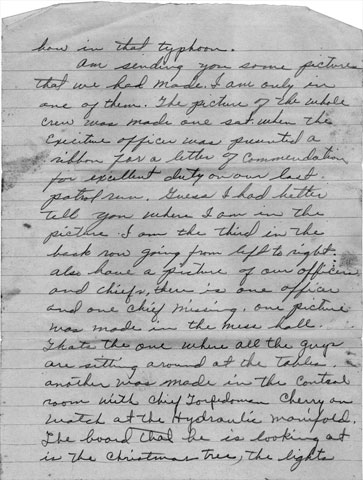 how in that typhoon.
Am sending you some pictures
that we had made. I am only in
one of them. The picture of the whole
crew was made one sat. when the
Excutive officer was presented a
ribbon for a letter of Commendation
for excellent duty on our last
patrol run. Guess I had better
tell you where I am in the
picture. I am the third in the
back row going from left to right.
also have a picture of our officers
and chiefs, there is one officer
and one chief missing, one picture
was made in the mess hall.
Thats the one where all the guys
are setting around at the tables
another was made in the Control
room with Chief Torpedoman Cherry on
watch at the Hydraulic manifold.
The board that he is looking at
is the Christmas tree, the lights